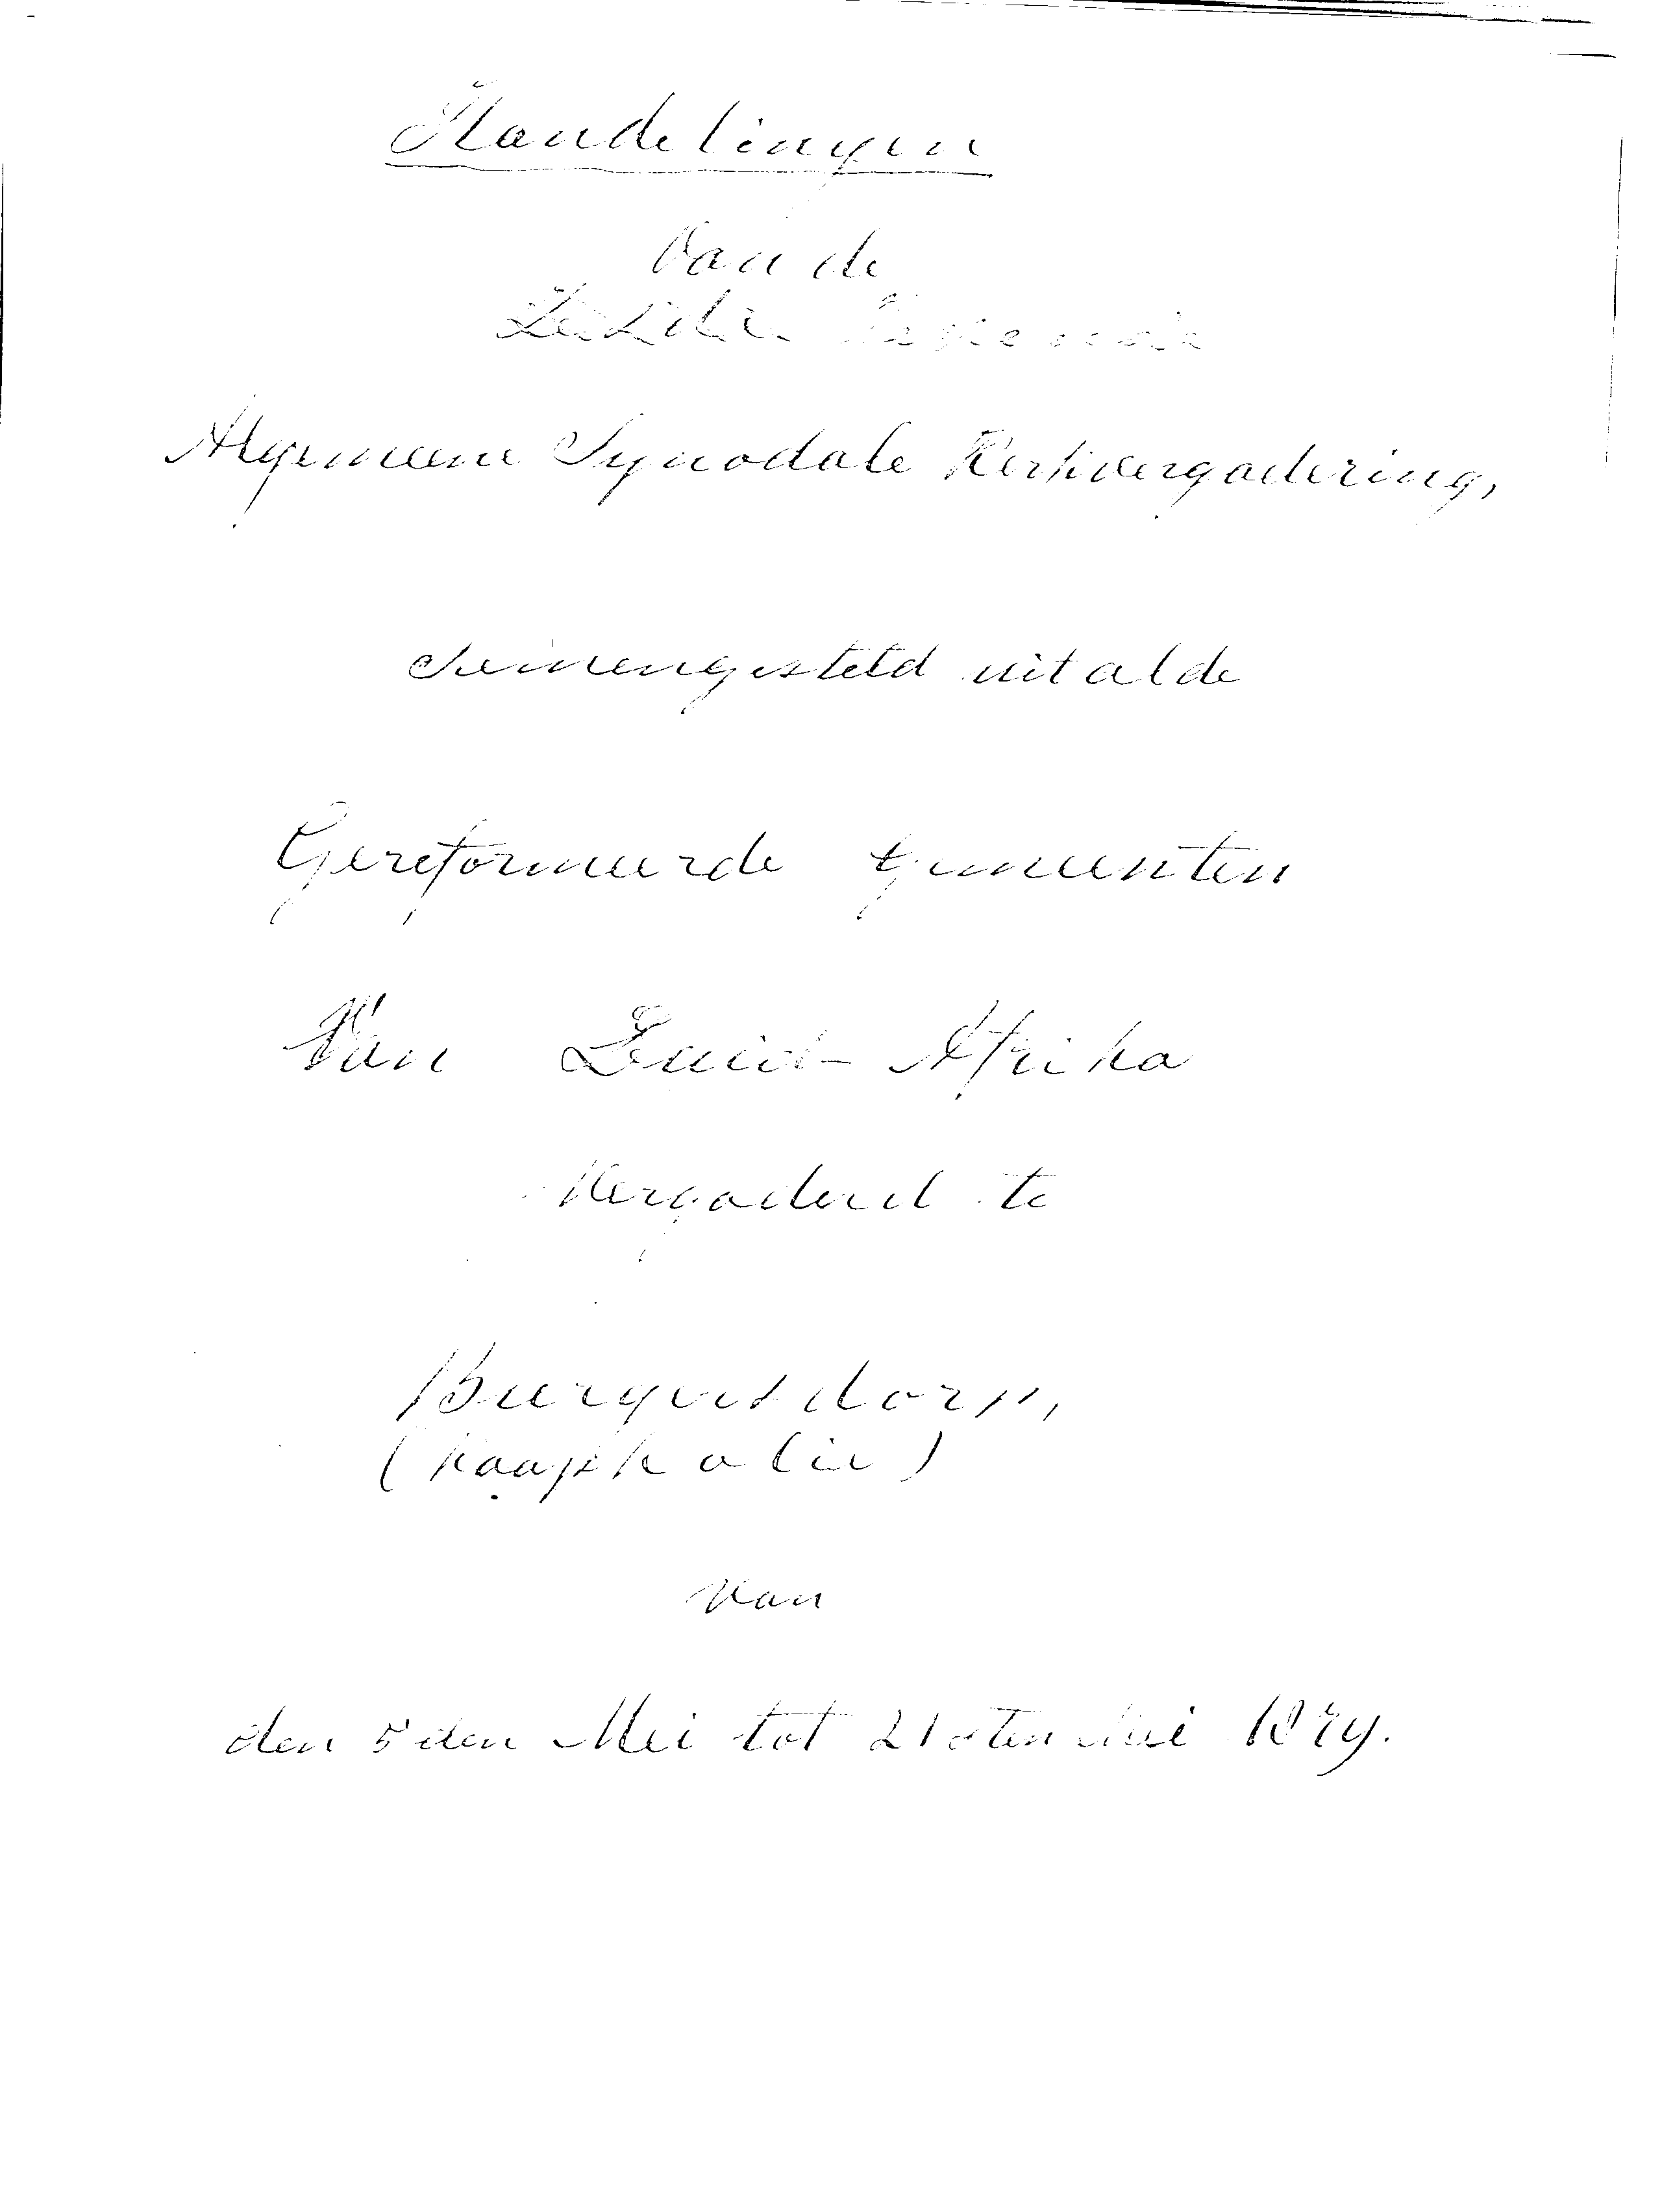 Handelingen
Van de
Algemeene Synodale Kerkvergadering,
Samengesteld uit al de
Gereformeerde Gemeenten
Van Zuid-Afrika
Vergaderd te
Burgersdorp,
(Kaapkolie)
Van
den 5den Mei tot 21sten Mei 1879.